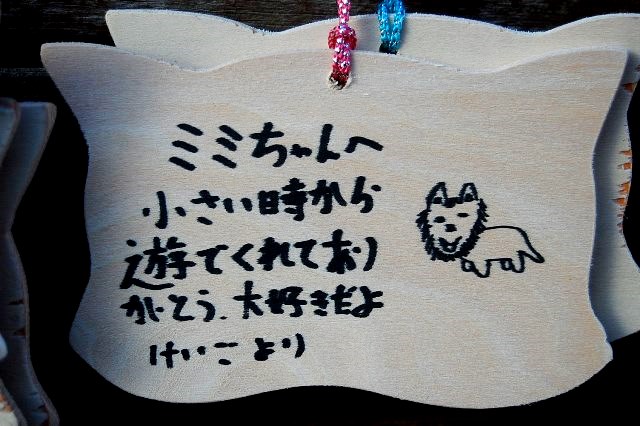 ミミちゃんへ
小さい時から
遊でくれてあり
がとう、大好きだよ
けいこより